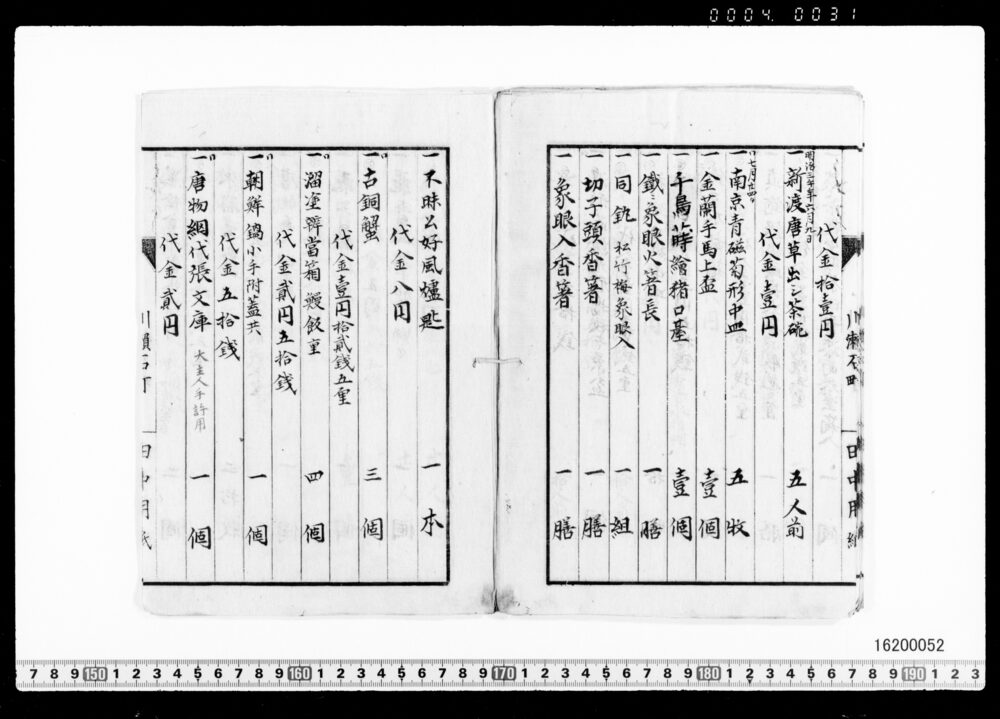 0004 0031
代金拾壹円
明治三十年六月九日
一 新渡唐草出シ茶碗 五人前
代金壹円
〃七月廿四日
一 南京青磁菊形中皿 五枚
一 金蘭手馬上盃 壹個
一 千鳥蒔繪猪口臺 壹個
一 鐵ニ象眼火箸長 一膳
一 同鉈 松竹梅象眼入 一組
一 切子頭香箸 一膳
一 象眼入香箸 一膳
一 不昧公好風爐匙 一本
代金八円
〃
一 古銅蟹 三個
代金壹円拾貳錢五厘
〃
一 溜塗辨當箱 鰻飯重 四個
代金貳円五拾錢
〃
一 朝鮮鍋小手附蓋共 一個
代金五拾錢
〃
一 唐物網代張文庫 大主人手許用 一個
代金貳円
川瀬石町
田中用紙
16200052
7 8 9 150 1 2 3 4 5 6 7 8 9 160 1 2 3 4 5 6 7 8 9 170 1 2 3 4 5 6 7 8 9 180 1 2 3 4 5 6 7 8 9 190 1 2 3